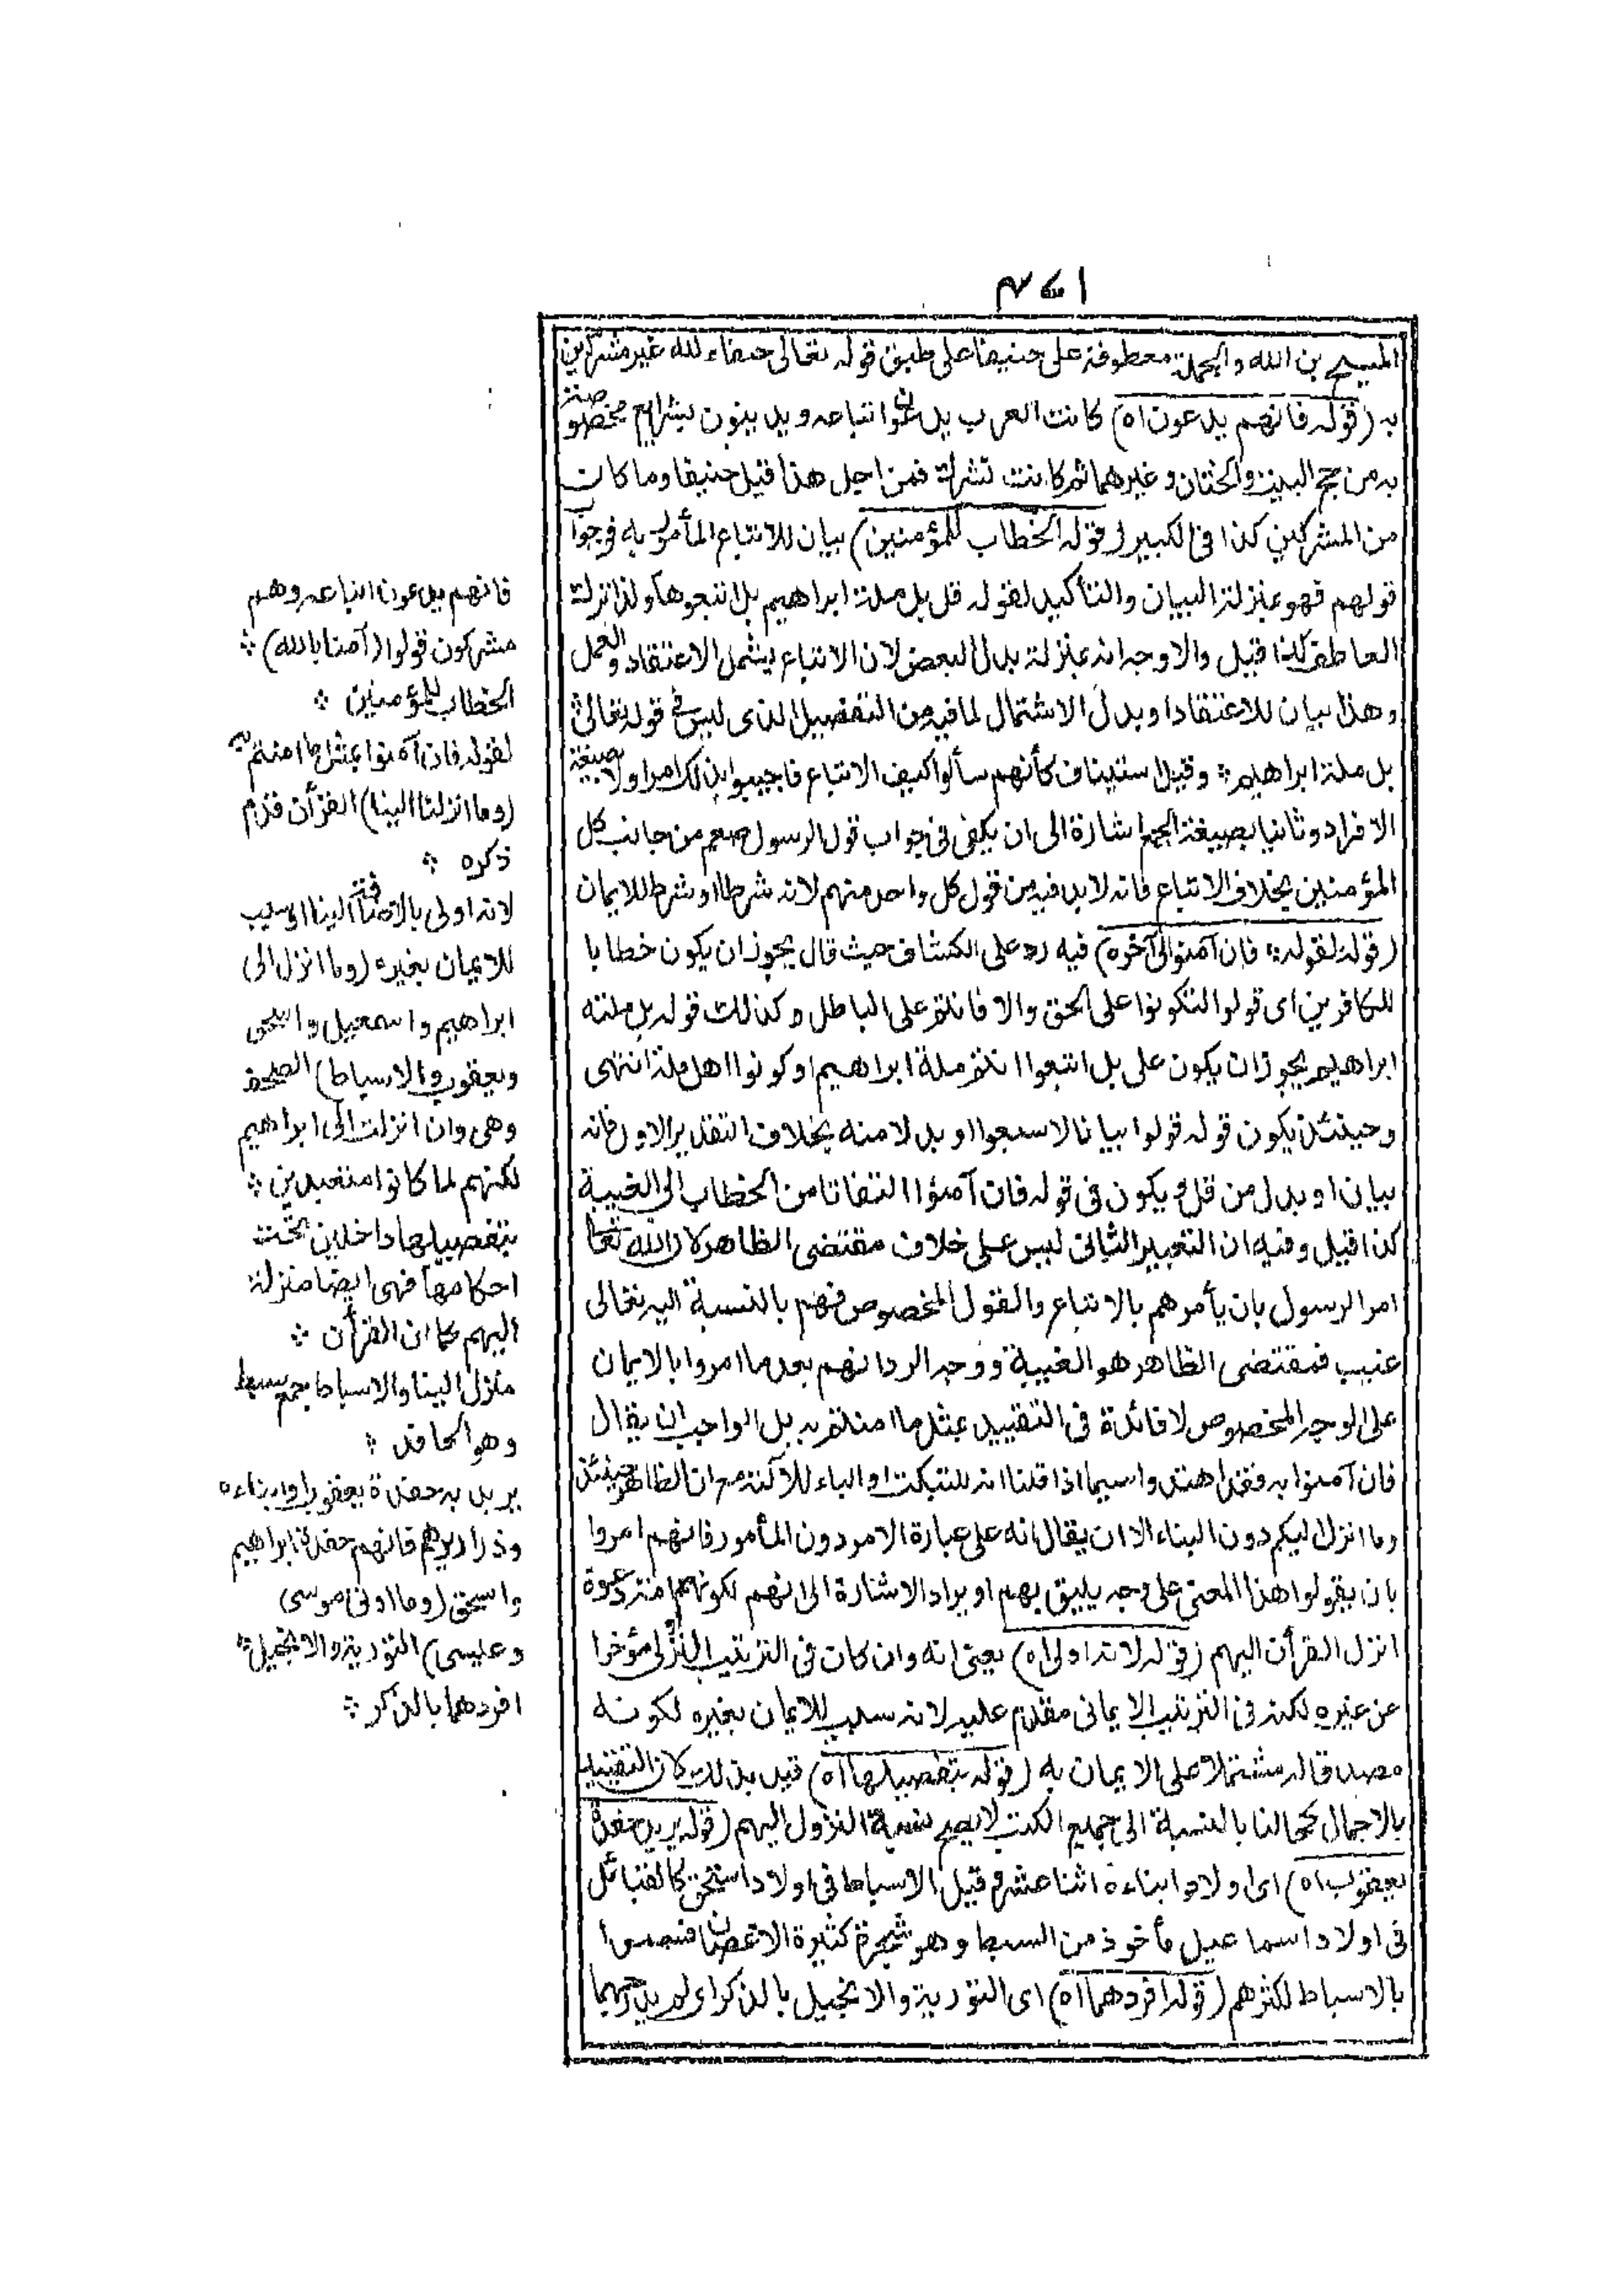 المسيح بن الله والجملة معطوفة على حنيفا على طبق قوله تعالى حنفاء لله غير مشركين
به (قوله فانهم يدعون اه) كانت العرب يدعون اتباعه ويدينون بشرايع مخصوصة
به من حج البيت والختان وغيرهما ثم كانت تشرك فمن اجل هذا قيل حنيفا وما كان
من المشركين كذا في الكبير (قوله الخطاب للمؤمنين) بيان للاتباع المأمور به فى جواب
قولهم فهو بمنزلة البيان والتأكيد لقوله قل بل ملة ابراهيم بل نتبعوها ولذا ترك
العاطف كذا قيل والاوجه انه بمنزلة بدل البعض لان الاتباع يشمل الاعتقاد والعمل
وهذا بيان للاعتقاد او بدل الاشتمال لما فيه من التفصيل الذى ليس في قوله تعالى
بل ملة ابراهيم وقيل استيناف كأنهم سألوا كيف الاتباع فاجيبوا بذلك امر اولا بصيغة
الافراد وثانيا بصيغة الجمع اشارة الى ان يكفى فى جواب قول الرسول صلعم من جانب كل
المؤمنين بخلاف الاتباع فانه لا بد فيه من قول كل واحد منهم لانه شرط او شرط للايمان
(قوله لقوله فان آمنوا الى آخره) فيه رد على الكشاف حيث قال يجوز ان يكون خطابا
للكافرين اى قولوا لتكونوا على الحق والا فانتم على الباطل وكذلك قوله بل ملته
ابراهيم يجوز ان يكون على بل اتبعوا انتم ملة ابراهيم او كونوا اهل ملة انتهى
وحينئذ يكون قوله قولوا بيانا لاتبعوا او بدلا منه بخلاف التقدير الاول فانه
بيان او بدل من قل ويكون فى قوله فان آمنوا التفاتا من الخطاب الى الغيبة
كذا قيل وفيه ان التعبير الثانى ليس على خلاف مقتضى الظاهر لان الله تعا
امر الرسول بان يأمرهم بالاتباع والقول المخصوص فهم بالنسبة اليه تعالى
غيب فمقتضى الظاهر هو الغيبة ووجه الرد انهم بعد ما امروا بالايمان
على الوجه المخصوص لا فائدة فى التقييد بمثل ما امنتم به بل الواجب ان يقال
فان آمنوا به فقد اهتدوا سيما اذا قلنا انه للتبكيت او الباء للآلة مع ان الظاهر حينئذ
وما انزل اليكم دون الينا الا ان يقال انه على عبارة الامر دون المأمور فانهم امروا
بان يقولوا هذا المعنى على وجه يليق بهم او يراد الاشارة الى انهم لكونهم امة دعوة
انزل القرأن اليهم (قوله لانه اولى اه) يعنى انه وان كان فى الترتيب النزلى مؤخرا
عن غيره لكنه فى الترتيب الايمانى مقدم عليه لانه سبب للايمان بغيره لكونه
مصدقا له مشتملا على الايمان به (قوله بتفصيلها اه) قيد بذلك لان التعبد
بالاجمال كحالنا بالنسبة الى جميع الكتب لا يصح نسبة النزول اليهم (قوله يريد حفدة
يعقوب اه) اى اولاد ابنائه اثنا عشر قيل الاسباط فى اولاد اسحق كالقبائل
فى اولاد اسماعيل مأخوذ من السبط وهو شجرة كثيرة الاغصان فسموا
بالاسباط لكثرهم (قوله افردهما اه) اى التورية والانجيل بالذكر اى لم يدرجهما
فانهم يدعون اتباعه وهم
مشركون قولوا (آمنا بالله)
الخطاب للمؤمنين
لقوله فان آمنوا بمثل ما امنتم به
(وما انزل الينا) القرأن قدم
ذكره
لانه اولى بالاضافة الينا او سبب
للايمان بغيره (وما انزل الى
ابراهيم واسمعيل واسحق
ويعقوب والاسباط) الصحف
وهى وان انزلت الى ابراهيم
لكنهم لما كانوا متعبدين
بتفصيلها داخلين تحت
احكامها فهى ايضا منزلة
اليهم كما ان القرأن
منزل الينا والاسباط جمع سبط
وهو الحافد
يريد به حفدة يعقوب او ابناءه
وذراريهم فانهم حفدة ابراهيم
واسحق (وما اوتى موسى
وعيسى) التورية والانجيل
افردهما بالذكر